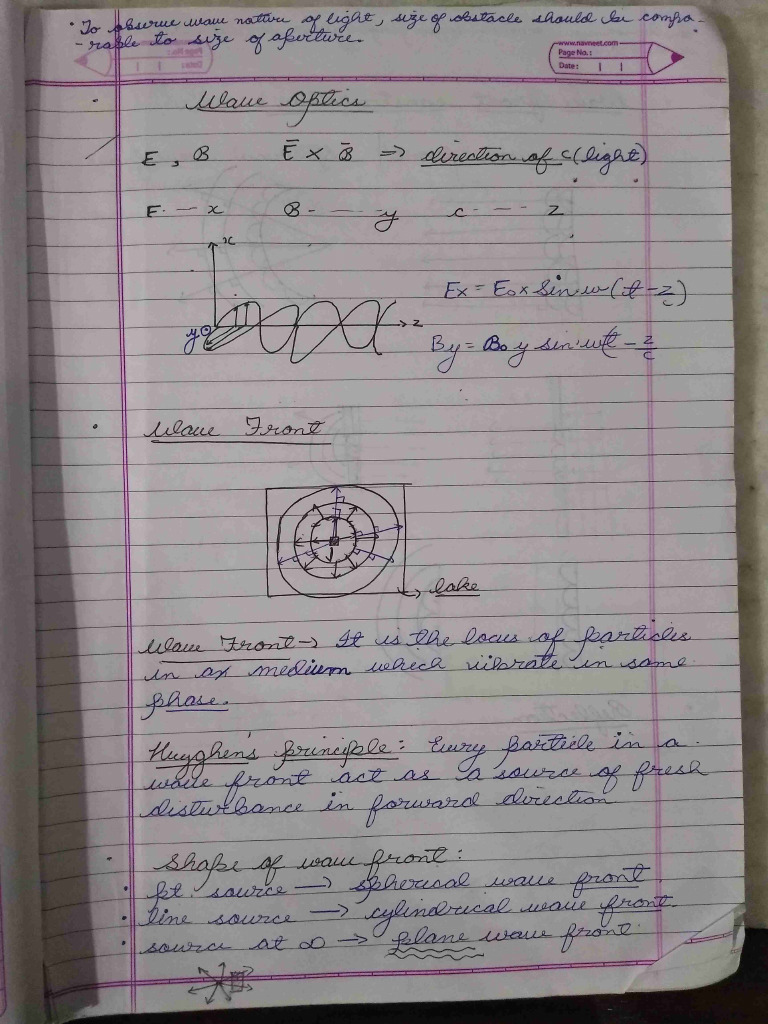 • To observe wave nature of light, size of obstacle should be compa-
-rable to size of aperture.
www.navneet.com
Page No.:
Date:
Wave Optics
E , B Ē × B̄ ⇒ direction of c (light)
E --- x B - --- y c - --- z
x
y
z
Ex = E₀x sin w (t - z/c)
By = B₀y sin wt - z/c
• Wave Front
lake
Wave Front → It is the locus of particles
in ax medium which vibrate in same
phase.
Huyghen's principle: Every particle in a
wave front act as a source of fresh
disturbance in forward direction
• Shape of wave front:
• pt. source → spherical wave front.
• line source → cylindrical wave front.
• source at ∞ → plane wave front.